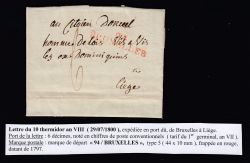 au citoyen
hommes de loix vis a vis
les
Liège
BRUXELLES
Lettre du 10 thermidor an VIII ( 29/07/1800 ), expédiée en port dû, de Bruxelles à Liège.
Port de la lettre : 6 décimes, noté en chiffres de poste conventionnels ( tarif du 1er germinal, an VII ).
Marque postale : marque de départ « 94 / BRUXELLES », type 5 ( 44 x 10 mm ), frappée en rouge,
datant de 1797.